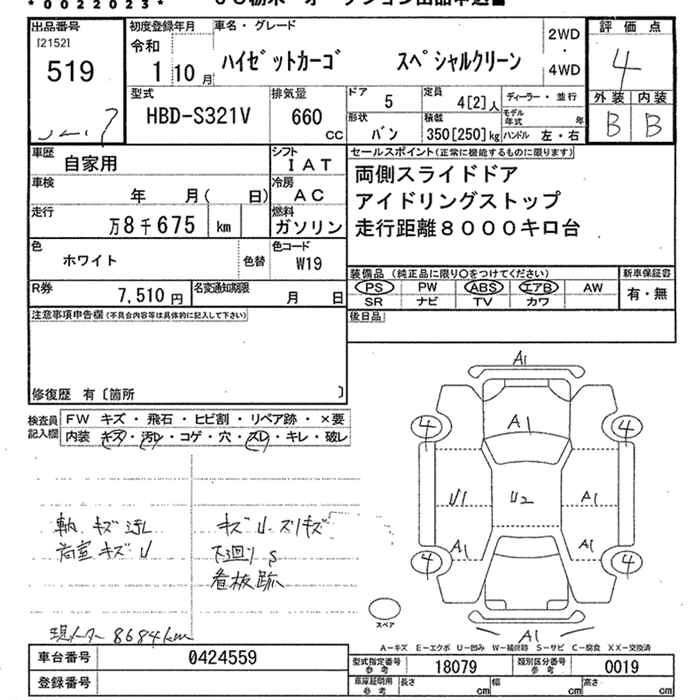 *0022023*
出品番号
[2152]
519
初度登録年月
令和
1 10月
車名・グレード
ハイゼットカーゴ スペシャルクリーン
2WD
・
4WD
評価点
4
外装 内装
B B
型式
HBD-S321V
排気量
660
CC
ドア
5
定員
4[2]人
ディーラー・並行
形状
バン
積載
350[250]kg
モデル年式 年
ハンドル 左・右
車歴
自家用
シフト
IAT
車検
年 月( 日)
冷房
AC
走行
万8千675 km
燃料
ガソリン
色
ホワイト
色替
色コード
W19
R券
7,510円
名変通知期限
月 日
セールスポイント(正常に機能するものに限ります)
両側スライドドア
アイドリングストップ
走行距離8000キロ台
装備品(純正品に限り○をつけてください)
PS PW ABS エアB AW
SR ナビ TV カワ
新車保証書
有・無
後日品
注意事項申告欄(不具合内容等は具体的に記入して下さい)
修復歴 有〔箇所 〕
検査員記入欄
FW キズ・飛石・ヒビ割・リペア跡・×要
内装 キズ・汚レ・コゲ・穴・スレ・キレ・破レ
キズ汚レ
荷室キズU
キズU・スリキズ
下廻りS
看板跡
現メーター8684km
A1
A1
4 4
U1 U2 A1
A1 A1
4 4
A1
スペア
A-キズ E-エクボ U-凹み W-補修跡 S-サビ C-腐食 XX-交換済
車台番号
0424559
登録番号
型式指定番号
参考
18079
類別区分番号
参考
0019
車庫証明用
参考
長さ cm 幅 cm 高さ cm